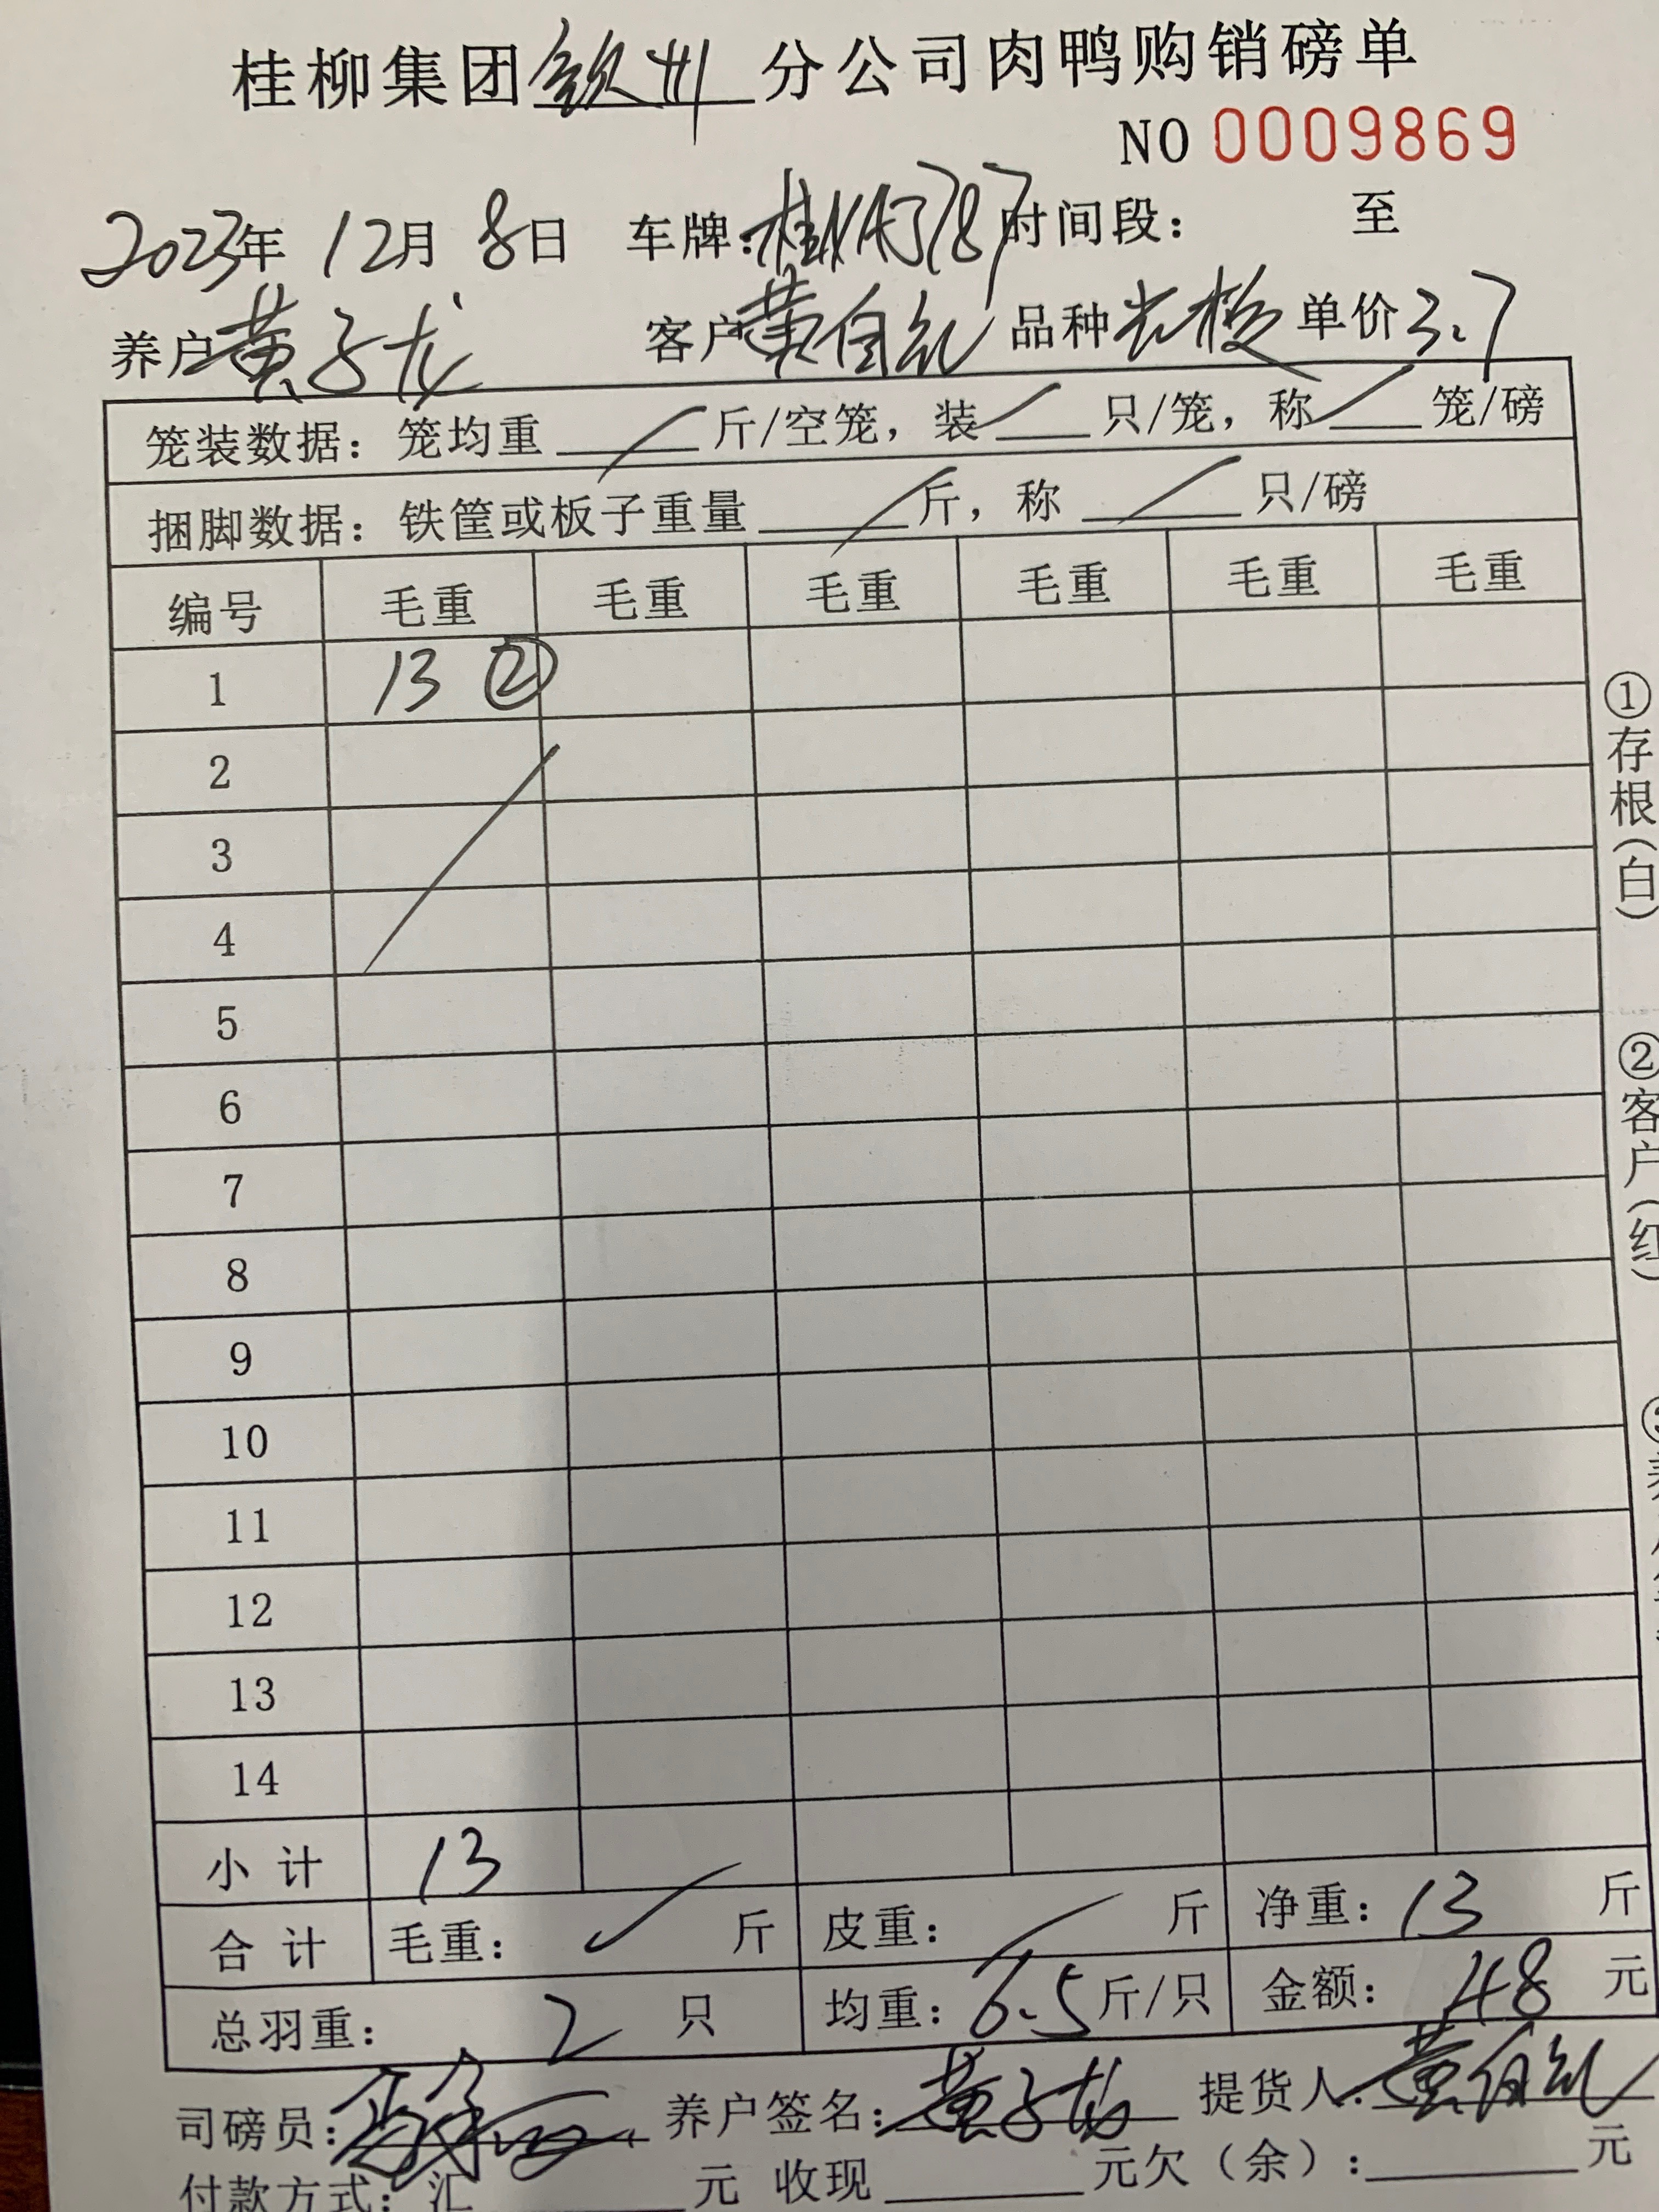 桂柳集团钦州分公司肉鸭购销磅单
NO 0009869
2023年 12月 8日 车牌: 时间段: 至
养户黄子龙 客户黄自 品种 单价3.7
笼装数据: 笼均重 斤/空笼, 装 只/笼, 称 笼/磅
捆脚数据: 铁筐或板子重量 斤, 称 只/磅
编号 毛重 毛重 毛重 毛重 毛重 毛重
1 13 ②
2
3
4
5
6
7
8
9
10
11
12
13
14
小计 13
合计 毛重: 斤 皮重: 斤 净重: 13 斤
总羽重: 2 只 均重: 6.5 斤/只 金额: 48 元
司磅员: 养户签名: 黄子龙 提货人: 黄自
付款方式: 汇 元 收现 元欠(余): 元
①存根(白)
②客户(红)